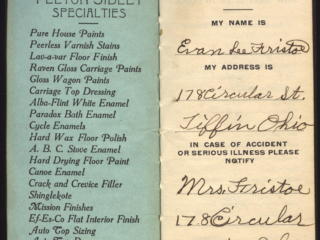 SPECIALTIES
Pure House Paints
Peerless Varnish Stains
Lav-a-var Floor Finish
Raven Gloss Carriage Paints
Gloss Wagon Paints
Carriage Top Dressing
Alba-Flint White Enamel
Paradox Bath Enamel
Cycle Enamels
Hard Wax Floor Polish
A. B. C. Stove Enamel
Hard Drying Floor Paint
Canoe Enamel
Crack and Crevice Filler
Shinglekote
Mission Finishes
Ef-Es-Co Flat Interior Finish
Auto Top Sizing
MY NAME IS
Evan Lee Fristoe
MY ADDRESS IS
178 Circular St.
Tiffin Ohio
IN CASE OF ACCIDENT
OR SERIOUS ILLNESS PLEASE
NOTIFY
Mrs. Fristoe
178 Circular